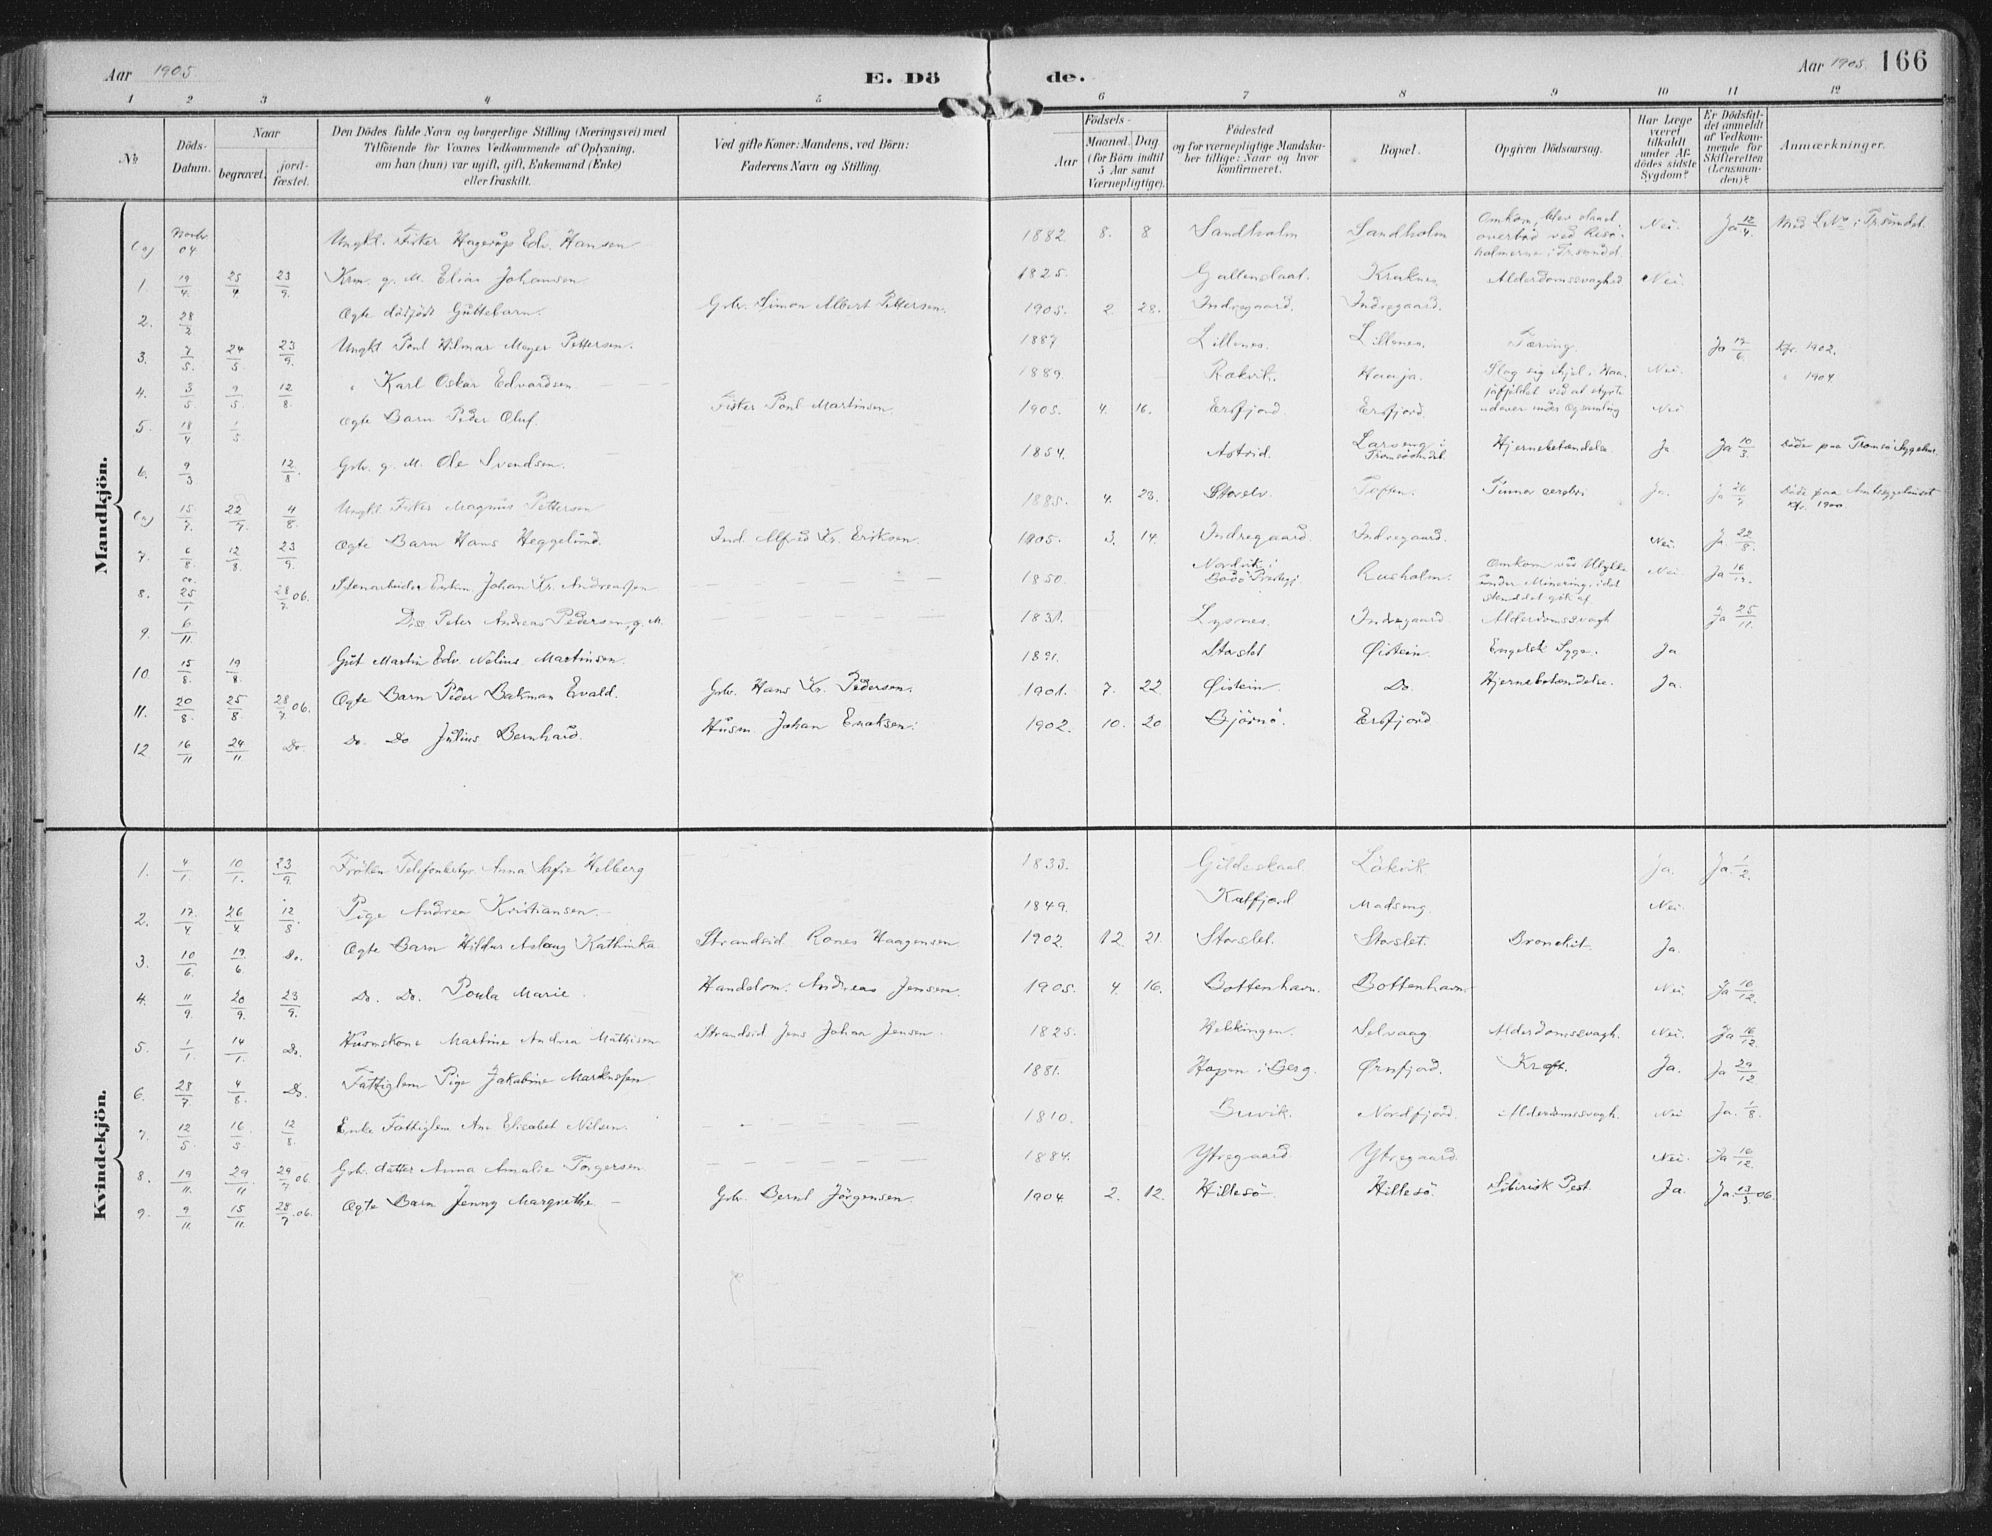 Aar 1905
E. Dö de.
Aar 1905. 166
1 2 3 4 5 6 7 8 9 10 11 12
№
Döds-Datum.
Naar
begravet.
jordfæstet.
Den Dödes fulde Navn og borgerlige Stilling (Næringsvei) med Tilföiende for Voxnes Vedkommende af Oplysning, om han (hun) var ugift, gift, Enkemand (Enke) eller fraskilt.
Ved gifte Koner: Mandens, ved Börn: Faderens Navn og Stilling.
Födsels-
Aar
Maaned. Dag
(for Börn indtil 5 Aar samt Værnepligtige).
Födested og for værnepligtige Mandskaber tillige: Naar og hvor konfirmeret.
Bopæl.
Opgiven Dödsaarsag.
Har Læge været tilkaldt under Afdödes sidste Sygdom?
Er Dödsfaldet anmeldt af Vedkommende for Skifteretten (Lensmanden)?
Anmærkninger.
Mandkjön.
(a) Novbr 04 Ungkl. Fisker Hagerup Edv. Hansen 1882. 8. 8 Sandholm Sandholm Omkom, blev slaaet overbord ved Risöholmerne i Tr.sundet Nei. Ja 12/4. i Tr.sundet.
1. 19/4. 25/4 23/9. Krm. g. M. Elias Johansen 1825. Gallenslaat. Kraknes Alderdomssvaghed Nei.
2. 28/2. Ægte dödfödt Guttebarn. Gbr. Simon Albert Pettersen. 1905. 2. 28. Indregaard. Indregaard.
3. 7/5. 24/5. 23/9. Ungkl Poul Hilmar Meyer Pettersen. 1887 Lillenes. Lillenes. Tæring. Ja 17/6. Kfr. 1902.
4. 3/5. 9/5. 12/8. " Karl Oskar Edvardsen 1889. Rækvik. Haaja. Slog sig ihjel i Haajafjeldet ved at styrte udover under Ægsamling Nei. " 1904
5. 18/4. 1/5 Ægte Barn Peder Oluf. Fisker Poul Martinsen 1905. 4. 16. Ersfjord. Ersfjord. Nei
6. 9/3 12/8 Gbr. g. M. Ole Svendsen. 1854. Astrid. Larseng i Tromsösundet. Hjernebetændelse. Ja Ja 10/3. Döde paa Tromsö Sygehus.
(a) 15/7. 22/7. 4/8. Ungkl Fisker Magnus Pettersen 1885. 4. 23. Storelv. Toften. Tumor cerebri Ja. Ja 26/7 Döde paa Amtssygehuset Kfr. 1900
7. 6/8. 12/8. 23/9. Ægte Barn Hans Heggelund. Ind. Alfred Kr. Eriksen. 1905. 3. 14. Indregaard. Indregaard. Nei. Ja. 22/8.
8. 25/1 28/7 06. Stenarbeider Enkm. Johan Kr. Andreassen 1850. Nordvik i Bodö Prestegj. Rusholm. Omkom under Minering, idet skuddet gik af Nei Ja 16
9. 6/11. Do. Peter Andreas Pedersen, g. M. 1831. Lysnes. Indregaard Alderdomssvagh Ja 25/11.
10 15/8. 19/8. Gut Martin Edv. Nelius Martinsen. 1891. Storslet Öistein. Engelsk Syge. Ja
11. 20/8. 25/8 28/7 06. Ægte Barn Peder Bakman Evald. Gbr. Hans Kr. Pedersen. 1901. 7. 22. Öistein Do. Hjernebetændelse. Ja.
12 16/11 24/11 Do. Do. Do Julius Bernhard. Husm. Johan Enoksen. 1902. 10. 20 Björnö. Ersfjord
Kvindekjön.
1. 4/1. 10/1. 23/9. Fröken Telefonbestyr. Anna Sofie Helberg 1833. Gildeskaal Lökvik. Ja. Ja. 1/2.
2. 17/4 26/4 12/8. Pige Andrea Kristiansen. 1849. Kalfjord Madseng. Nei.
3. 10/6. 19/6. Do. Ægte Barn Hildur Aslaug Kathinka Strandsid. Rones Haagensen 1902 12. 21. Storslet. Storslet. Bronckit. Ja.
4. 11/9. 20/9. 23/9. Do. Do. Poula Marie. Handelsm. Andreas Jensen. 1905. 4. 16. Bottenhavn. Bottenhavn. Nei. Ja 16/12.
5. 1/1. 14/1. Do. Husmskone Martine Andrea Mathisen Strandsid Jens Johan Jensen. 1825. Hekkingen. Selvaag Alderdomssvagh. Nei. Ja 16/12.
6. 28/7 4/8. Do. Fattiglem Pige Jakobine Markussen 1881. Hopen i Berg. Ørnfjord. Kræft. Ja. Ja 29/12
7. 12/5. 16/5. 12/8. Enke Fattiglem Ane Elisabet Nilsen. 1810. Buvik. Nordfjord. Alderdomssvagh. Nei Ja. 1/8
8. 19/11. 29/11 29/7 06. Gbr. datter Anna Amalie Torgersen 1884. Ytregaard. Ytregaard. Nei. Ja 16/12.
9. 9/11. 15/11. 28/7 06. Ægte Barn Jenny Margrethe Gbr. Bernt Jörgensen. 1904 2. 12. Hillesö Hillesö. Sibirisk Pest. Ja. Ja. 13/3 06.